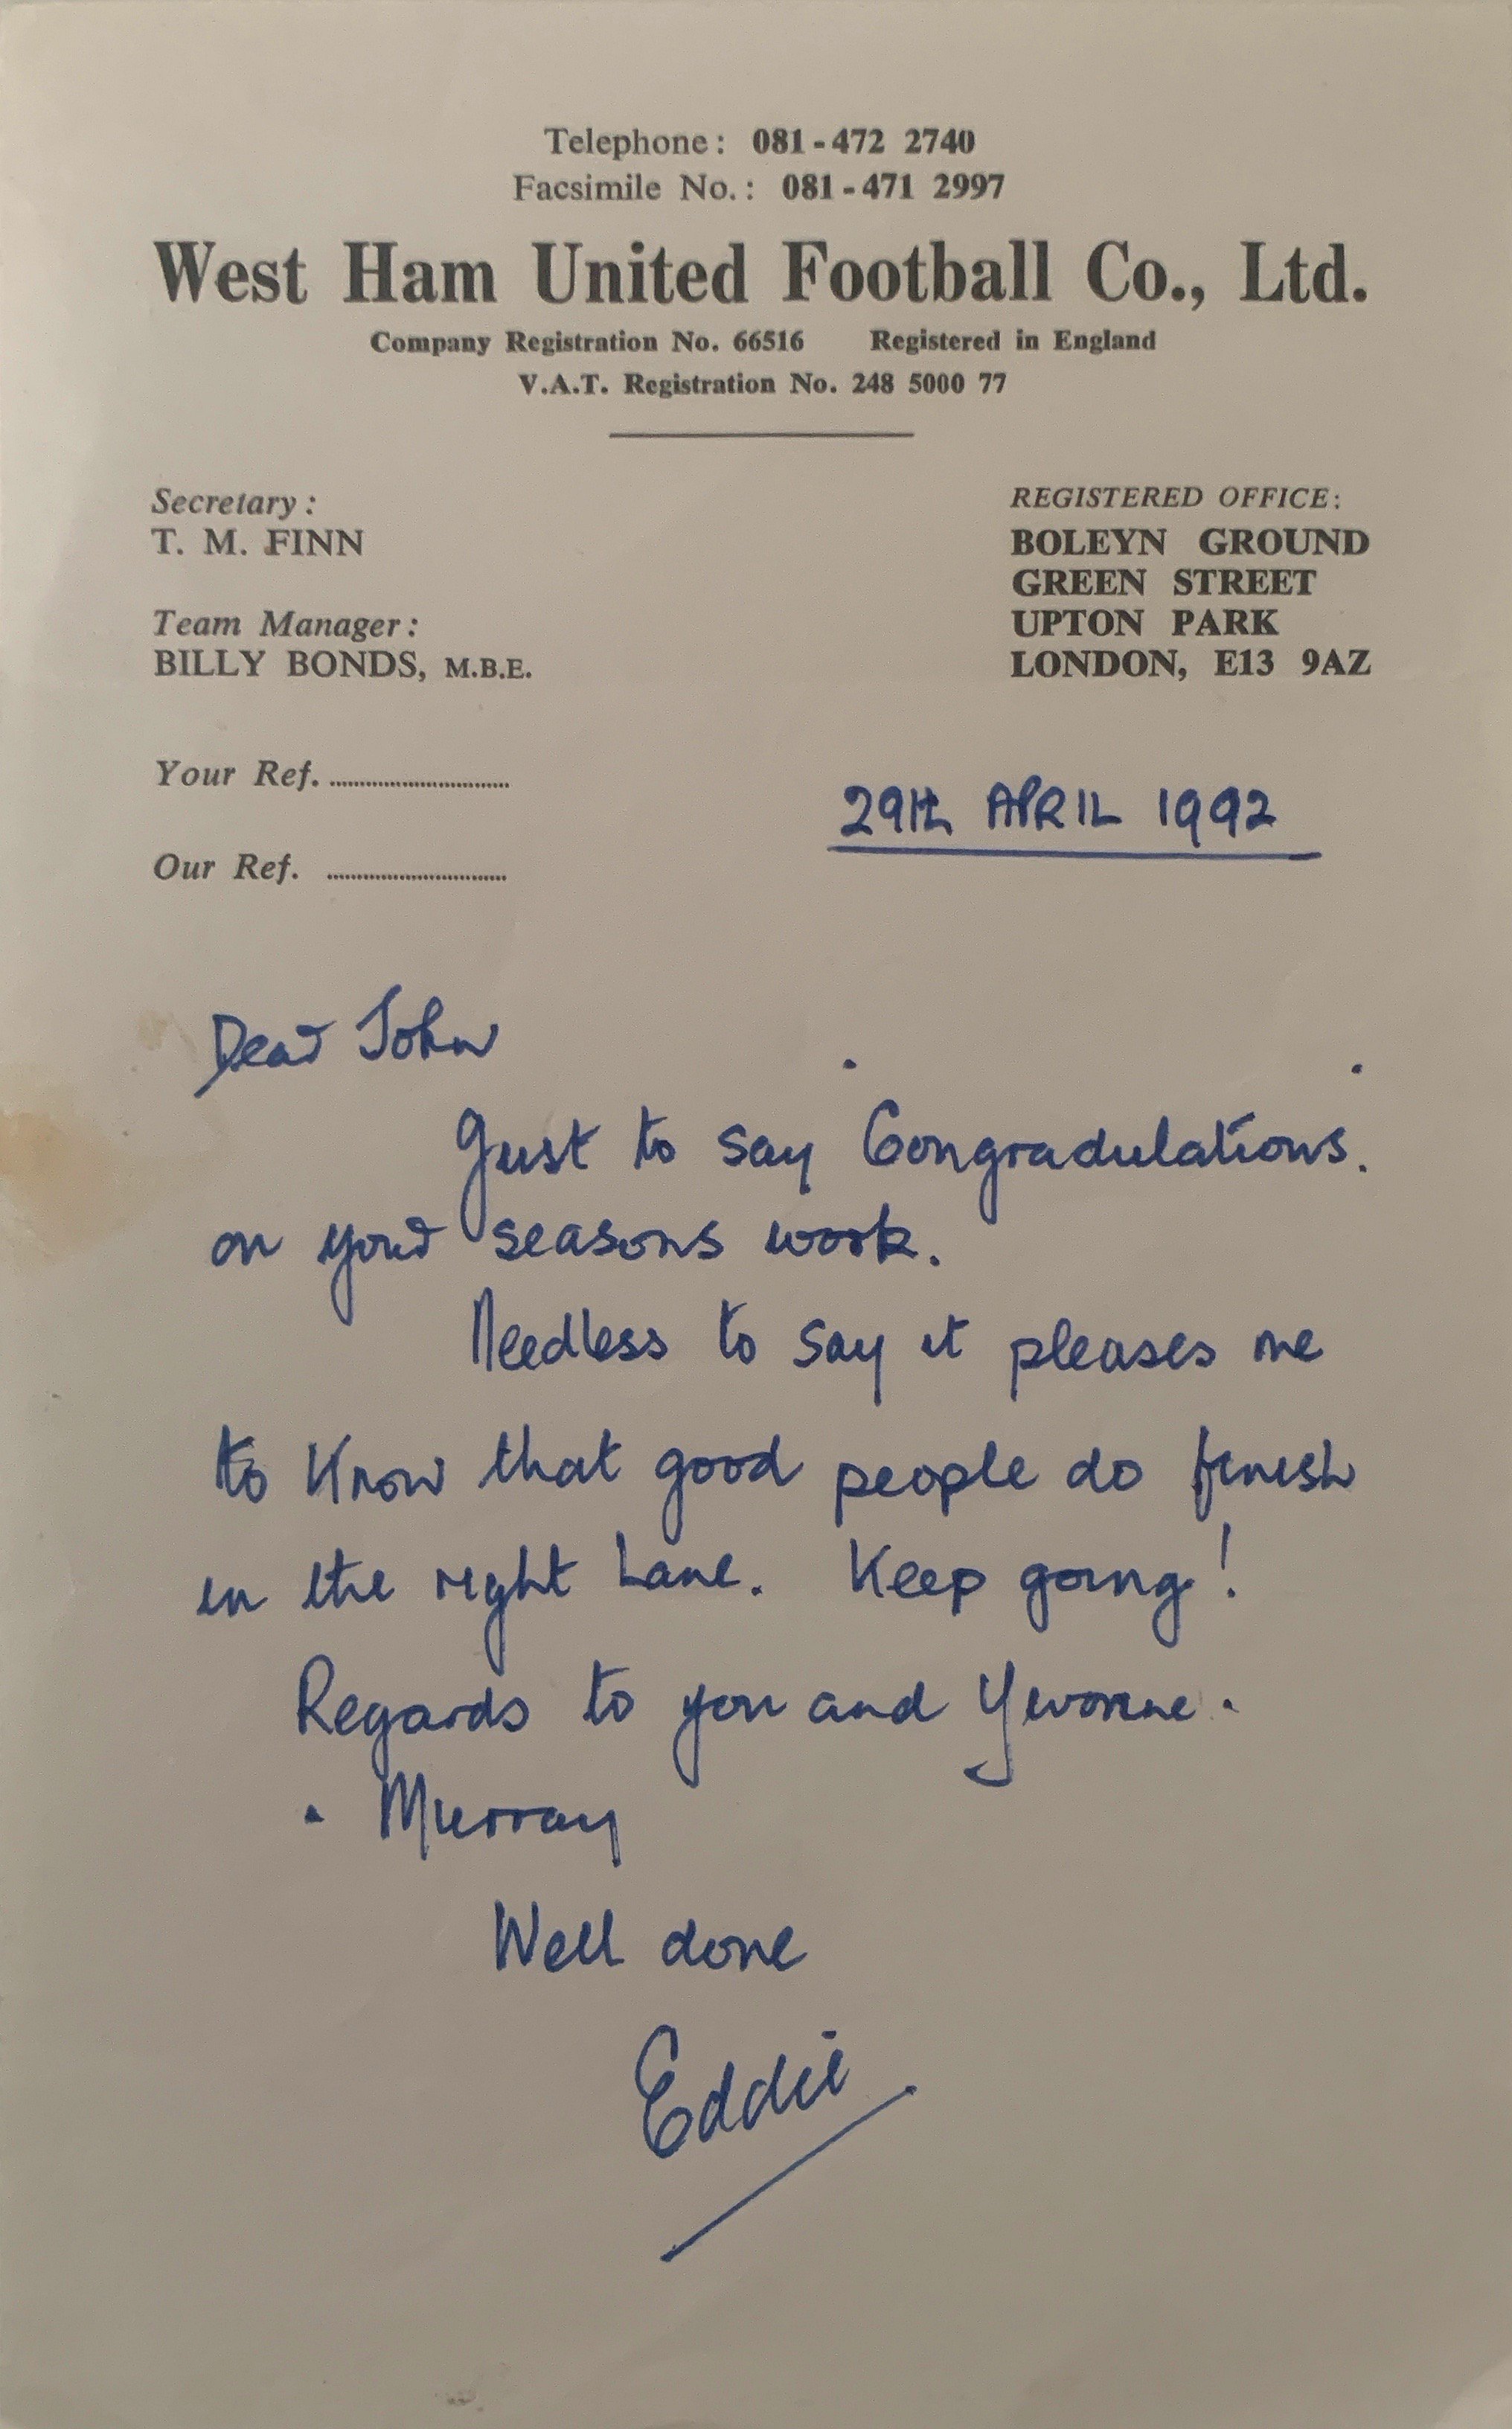 Telephone: 081-472 2740
Facsimile No.: 081-471 2997
West Ham United Football Co., Ltd.
Company Registration No. 66516 Registered in England
V.A.T. Registration No. 248 5000 77
Secretary:
T. M. FINN
Team Manager:
BILLY BONDS, M.B.E.
REGISTERED OFFICE:
BOLEYN GROUND
GREEN STREET
UPTON PARK
LONDON, E13 9AZ
Your Ref. ..............................
Our Ref. ..............................
29th APRIL 1992
Dear John
Just to say Congradulations.
on your seasons work.
Needless to say it pleases me
to know that good people do finish
in the right Lane. Keep going!
Regards to you and Yvonne.
. Murray
Well done
Eddie